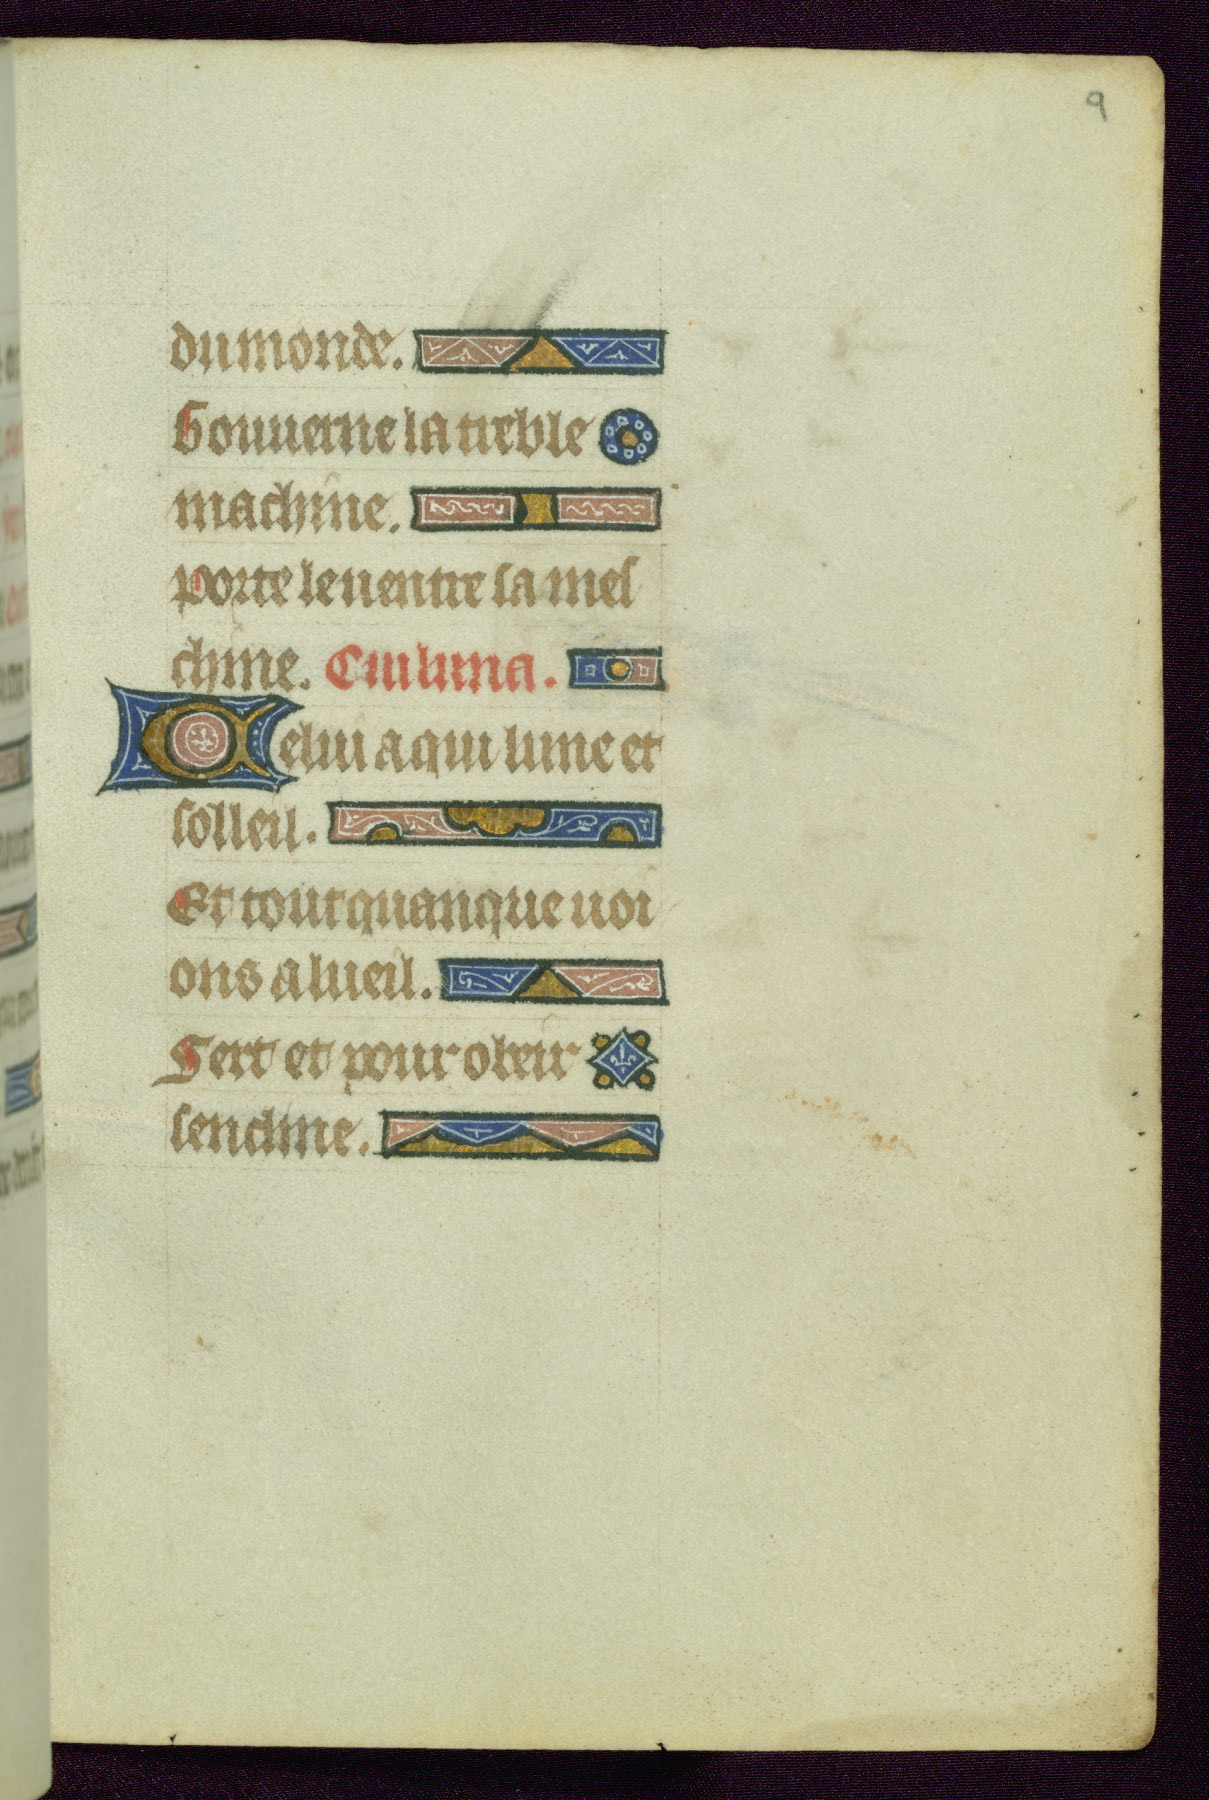 9
du monde.
Gouuerne la treble
machine.
porte le uentre sa mes
chine. Cui luna.
Celui a qui lune et
solleil.
Et tout quanque uoi
ons a lueil.
Sert et pour obeir
sencline.